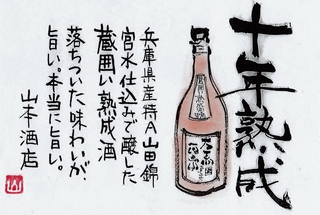 十年熟成
兵庫県産特A山田錦
宮水仕込みで醸した
蔵囲い熟成酒
落ちついた味わいが、
旨い。本当に旨い。
山本酒店